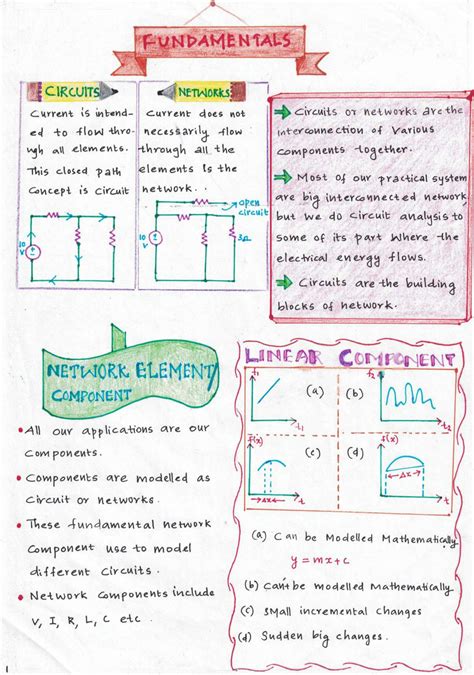 FUNDAMENTALS
CIRCUITS
Current is intend-
ed to flow thro-
ugh all elements.
This closed path
Concept is Circuit
10
V
NETWORKS
Current does not
necessarily flow
through all the
elements to the
network..
open
circuit
10
V
3Ω
Circuits or networks are the
interconnection of various
components together.
Most of our practical system
are big interconnected network
but we do circuit analysis to
some of its part where the
electrical energy flows.
Circuits are the building
blocks of network.
NETWORK ELEMENT/
COMPONENT
All our applications are our
Components.
Components are modelled as
Circuit or networks.
These fundamental network
Component use to model
different Circuits.
Network Components include
V, I, R, L, C etc.
LINEAR COMPONENT
t1
(a)
t1
t2
(b)
t2
f(x)
(c)
Δx
t
f(x)
(d)
Δx
t
(a) Can be Modelled Mathematically
y = mx+c
(b) Can't be modelled Mathematically
(c) Small incremental changes
(d) Sudden big changes.
1